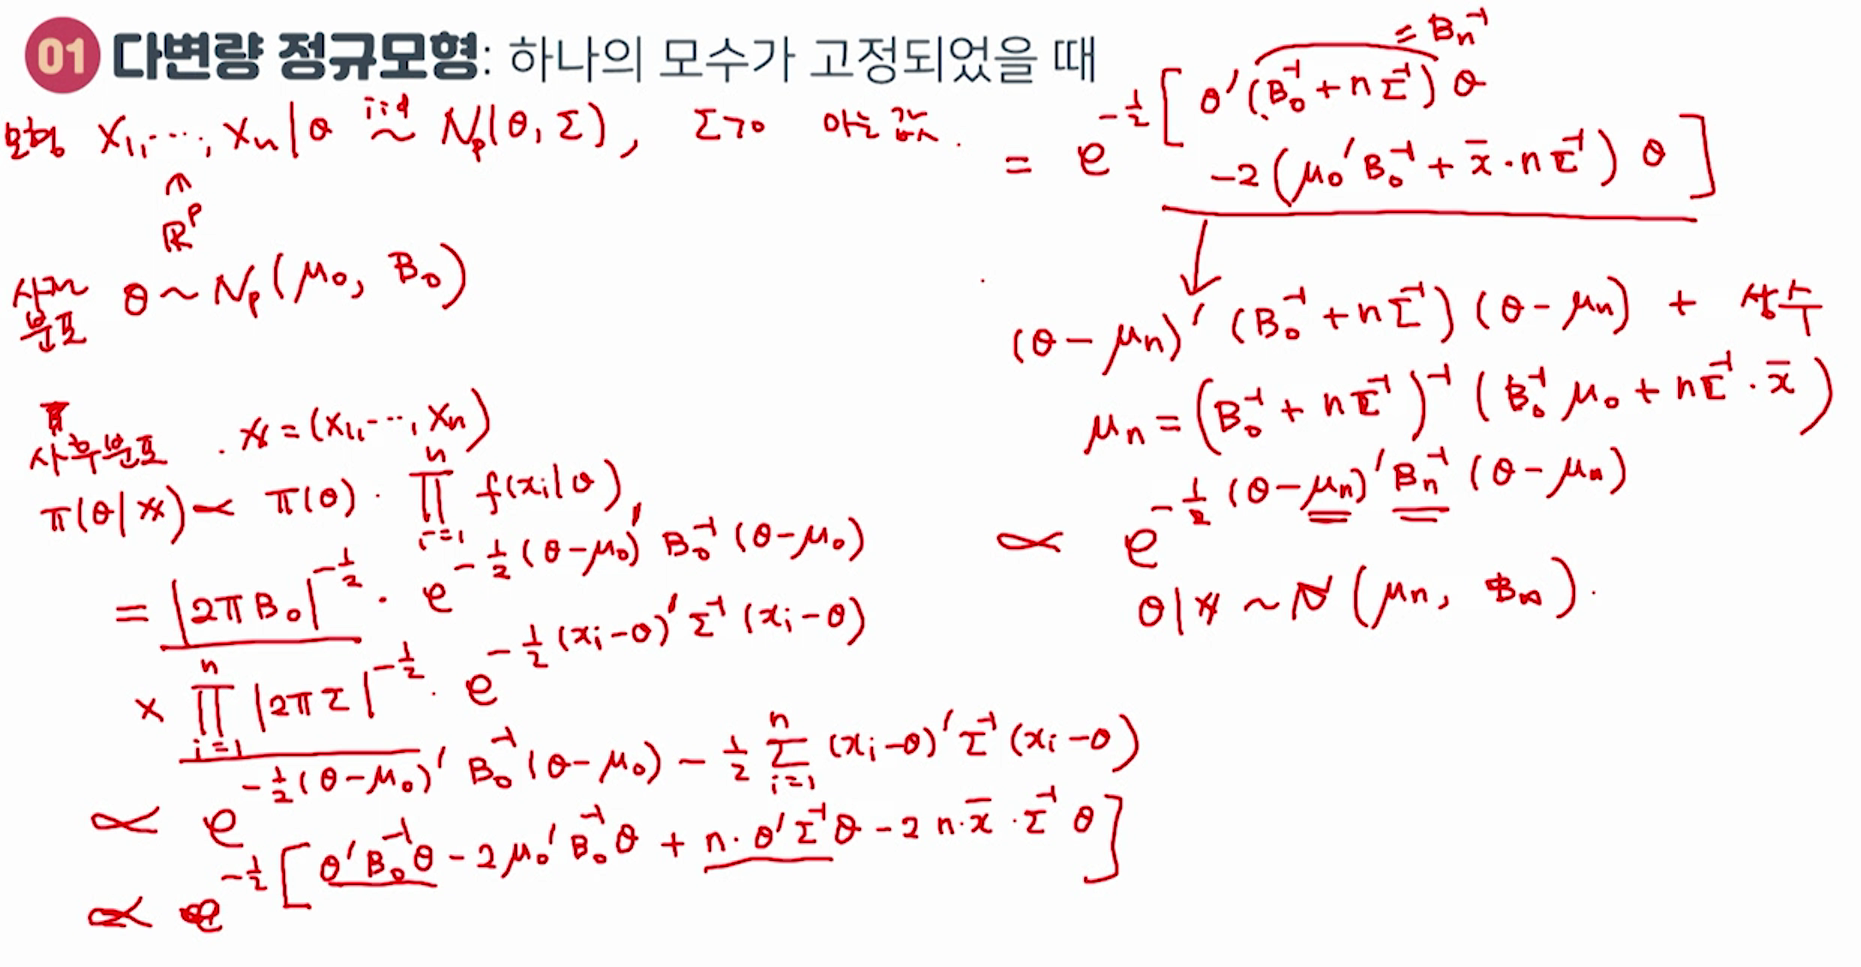 01 다변량 정규모형: 하나의 모수가 고정되었을 때
모형 X₁, ⋯, Xₙ | θ iid ~ Nₚ(θ, Σ), Σ>0 아는 값.
↑
ℝᵖ
사전 분포 θ ~ Nₚ(μ₀, B₀)
사후분포. 𝕏 = (X₁, ⋯, Xₙ)
π(θ|𝕏) ∝ π(θ) · ∏ᵢ₌₁ⁿ f(xᵢ|θ)
= |2πB₀|^{-1/2} · e^{-1/2 (θ-μ₀)' B₀⁻¹ (θ-μ₀)}
× ∏ᵢ₌₁ⁿ |2πΣ|^{-1/2} · e^{-1/2 (xᵢ-θ)' Σ⁻¹ (xᵢ-θ)}
∝ e^{-1/2 (θ-μ₀)' B₀⁻¹ (θ-μ₀) - 1/2 Σᵢ₌₁ⁿ (xᵢ-θ)' Σ⁻¹ (xᵢ-θ)}
∝ e^{-1/2 [θ'B₀⁻¹θ - 2μ₀'B₀⁻¹θ + n·θ'Σ⁻¹θ - 2n·x̄·Σ⁻¹θ]}
= Bₙ⁻¹
= e^{-1/2 [θ'(B₀⁻¹ + nΣ⁻¹)θ
-2(μ₀'B₀⁻¹ + x̄·nΣ⁻¹)θ]}
↓
(θ-μₙ)' (B₀⁻¹ + nΣ⁻¹) (θ-μₙ) + 상수
μₙ = (B₀⁻¹ + nΣ⁻¹)⁻¹ (B₀⁻¹μ₀ + nΣ⁻¹·x̄)
∝ e^{-1/2 (θ-μₙ)' Bₙ⁻¹ (θ-μₙ)}
θ|𝕏 ~ N(μₙ, Bₙ).